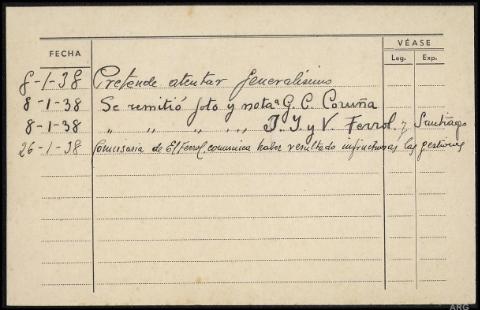 FECHA
VÉASE
Leg. Exp.
8-1-38 Pretende atentar Generalísimo
8-1-38 Se remitió foto y notaª G. C. Coruña
8-1-38 " " " " " I. Y. y V. Ferrol y Santiago
26-1-38 Comisaría de El Ferrol comunica haber resultado infructuosas las gestiones
ARG